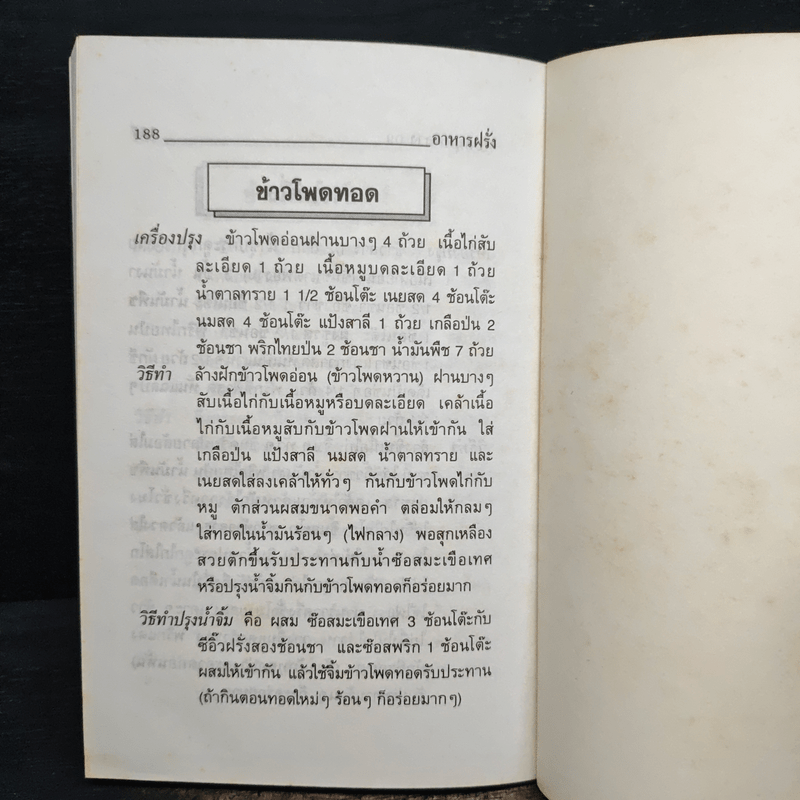 188 อาหารฝรั่ง
ข้าวโพดทอด
เครื่องปรุง ข้าวโพดอ่อนฝานบางๆ 4 ถ้วย เนื้อไก่สับ
ละเอียด 1 ถ้วย เนื้อหมูบดละเอียด 1 ถ้วย
น้ำตาลทราย 1 1/2 ช้อนโต๊ะ เนยสด 4 ช้อนโต๊ะ
นมสด 4 ช้อนโต๊ะ แป้งสาลี 1 ถ้วย เกลือป่น 2
ช้อนชา พริกไทยป่น 2 ช้อนชา น้ำมันพืช 7 ถ้วย
วิธีทำ ล้างฝักข้าวโพดอ่อน (ข้าวโพดหวาน) ฝานบางๆ
สับเนื้อไก่กับเนื้อหมูหรือบดละเอียด เคล้าเนื้อ
ไก่กับเนื้อหมูสับกับข้าวโพดฝานให้เข้ากัน ใส่
เกลือป่น แป้งสาลี นมสด น้ำตาลทราย และ
เนยสดใส่ลงเคล้าให้ทั่วๆ กันกับข้าวโพดไก่กับ
หมู ตักส่วนผสมขนาดพอคำ ตล่อมให้กลมๆ
ใส่ทอดในน้ำมันร้อนๆ (ไฟกลาง) พอสุกเหลือง
สวยตักขึ้นรับประทานกับน้ำซ๊อสมะเขือเทศ
หรือปรุงน้ำจิ้มกินกับข้าวโพดทอดก็อร่อยมาก
วิธีทำปรุงน้ำจิ้ม คือ ผสม ซ๊อสมะเขือเทศ 3 ช้อนโต๊ะกับ
ซีอิ๊วฝรั่งสองช้อนชา และซ๊อสพริก 1 ช้อนโต๊ะ
ผสมให้เข้ากัน แล้วใช้จิ้มข้าวโพดทอดรับประทาน
(ถ้ากินตอนทอดใหม่ๆ ร้อนๆ ก็อร่อยมากๆ)